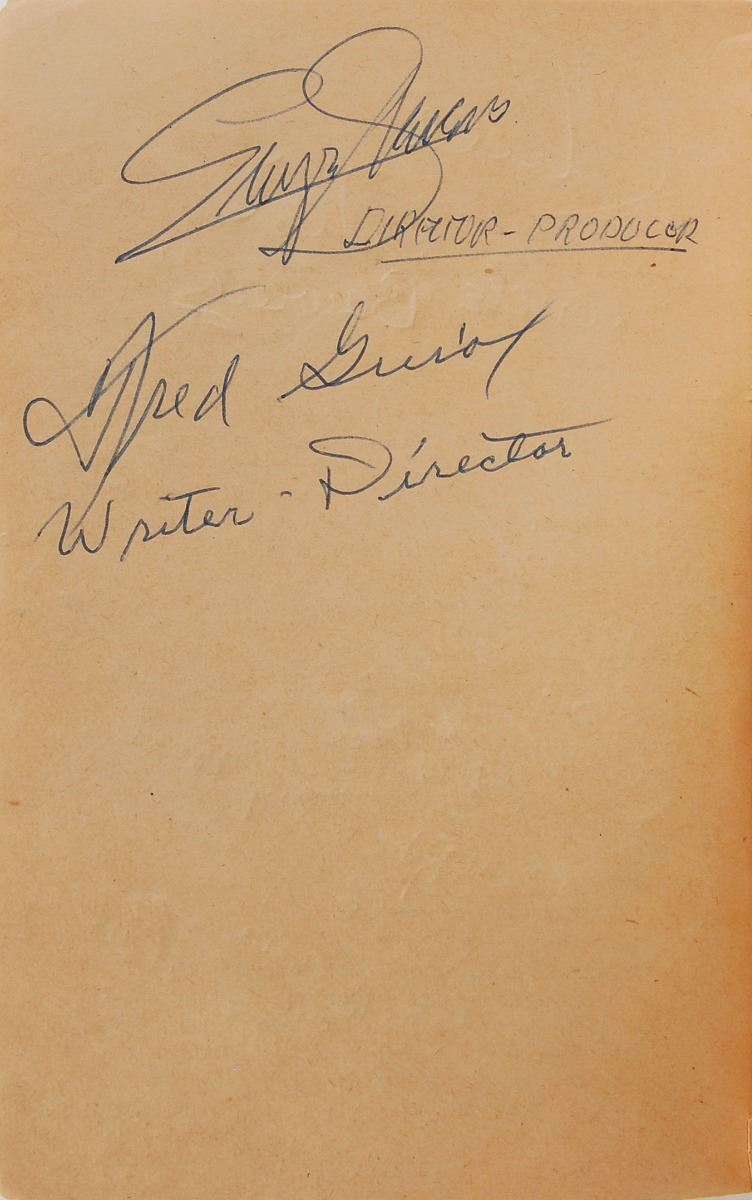 George Stevens
DIRECTOR - PRODUCER
Fred Guiol
Writer - Director